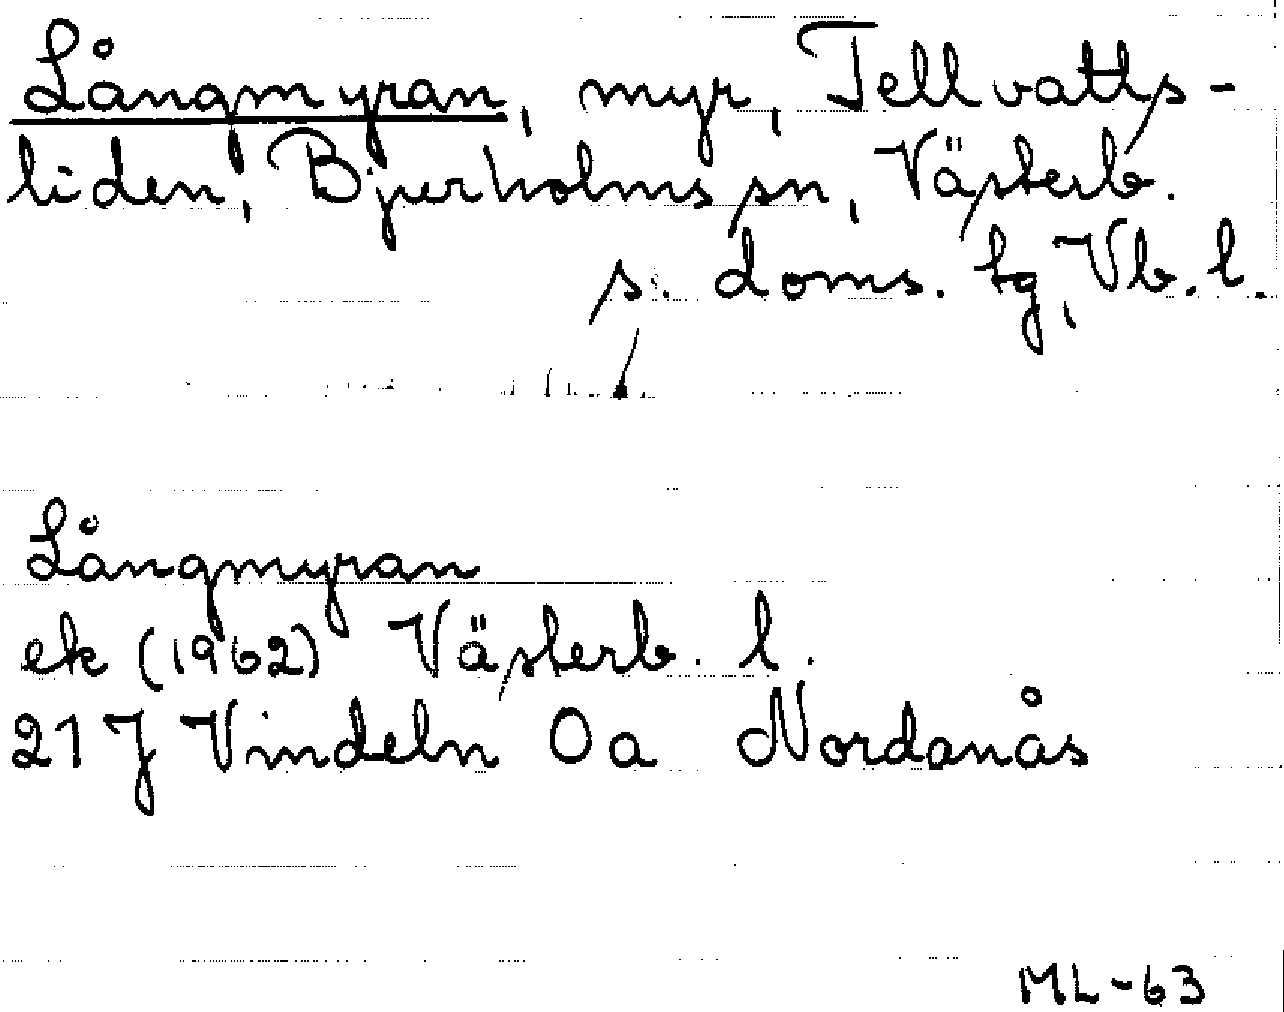 Långmyran, myr, Tellvatts-
liden, Bjurholms sn, Västerb.
s. doms. tg, Vb. l.
Långmyran
ek (1962) Västerb. l.
21 J Vindeln 0a Nordanås
ML-63